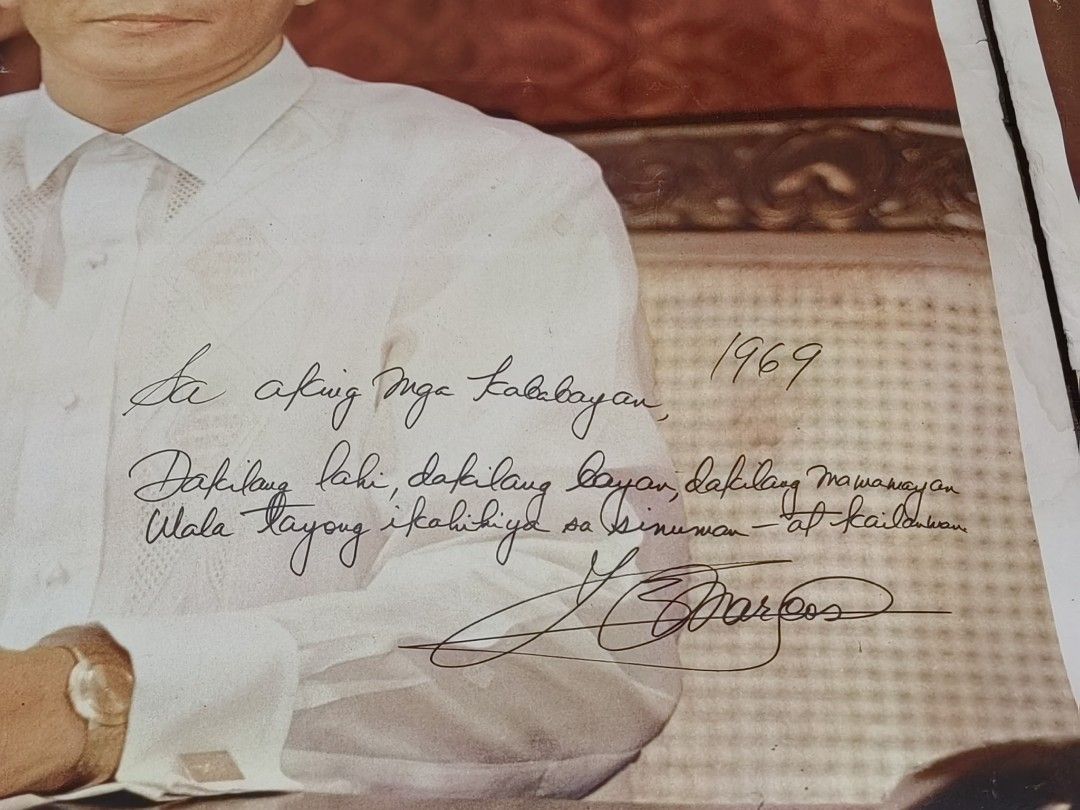 1969
Sa aking mga kababayan,
Dakilang lahi, dakilang bayan, dakilang mamamayan
Wala tayong ikahihiya sa sinuman – at kailanman.
F E Marcos